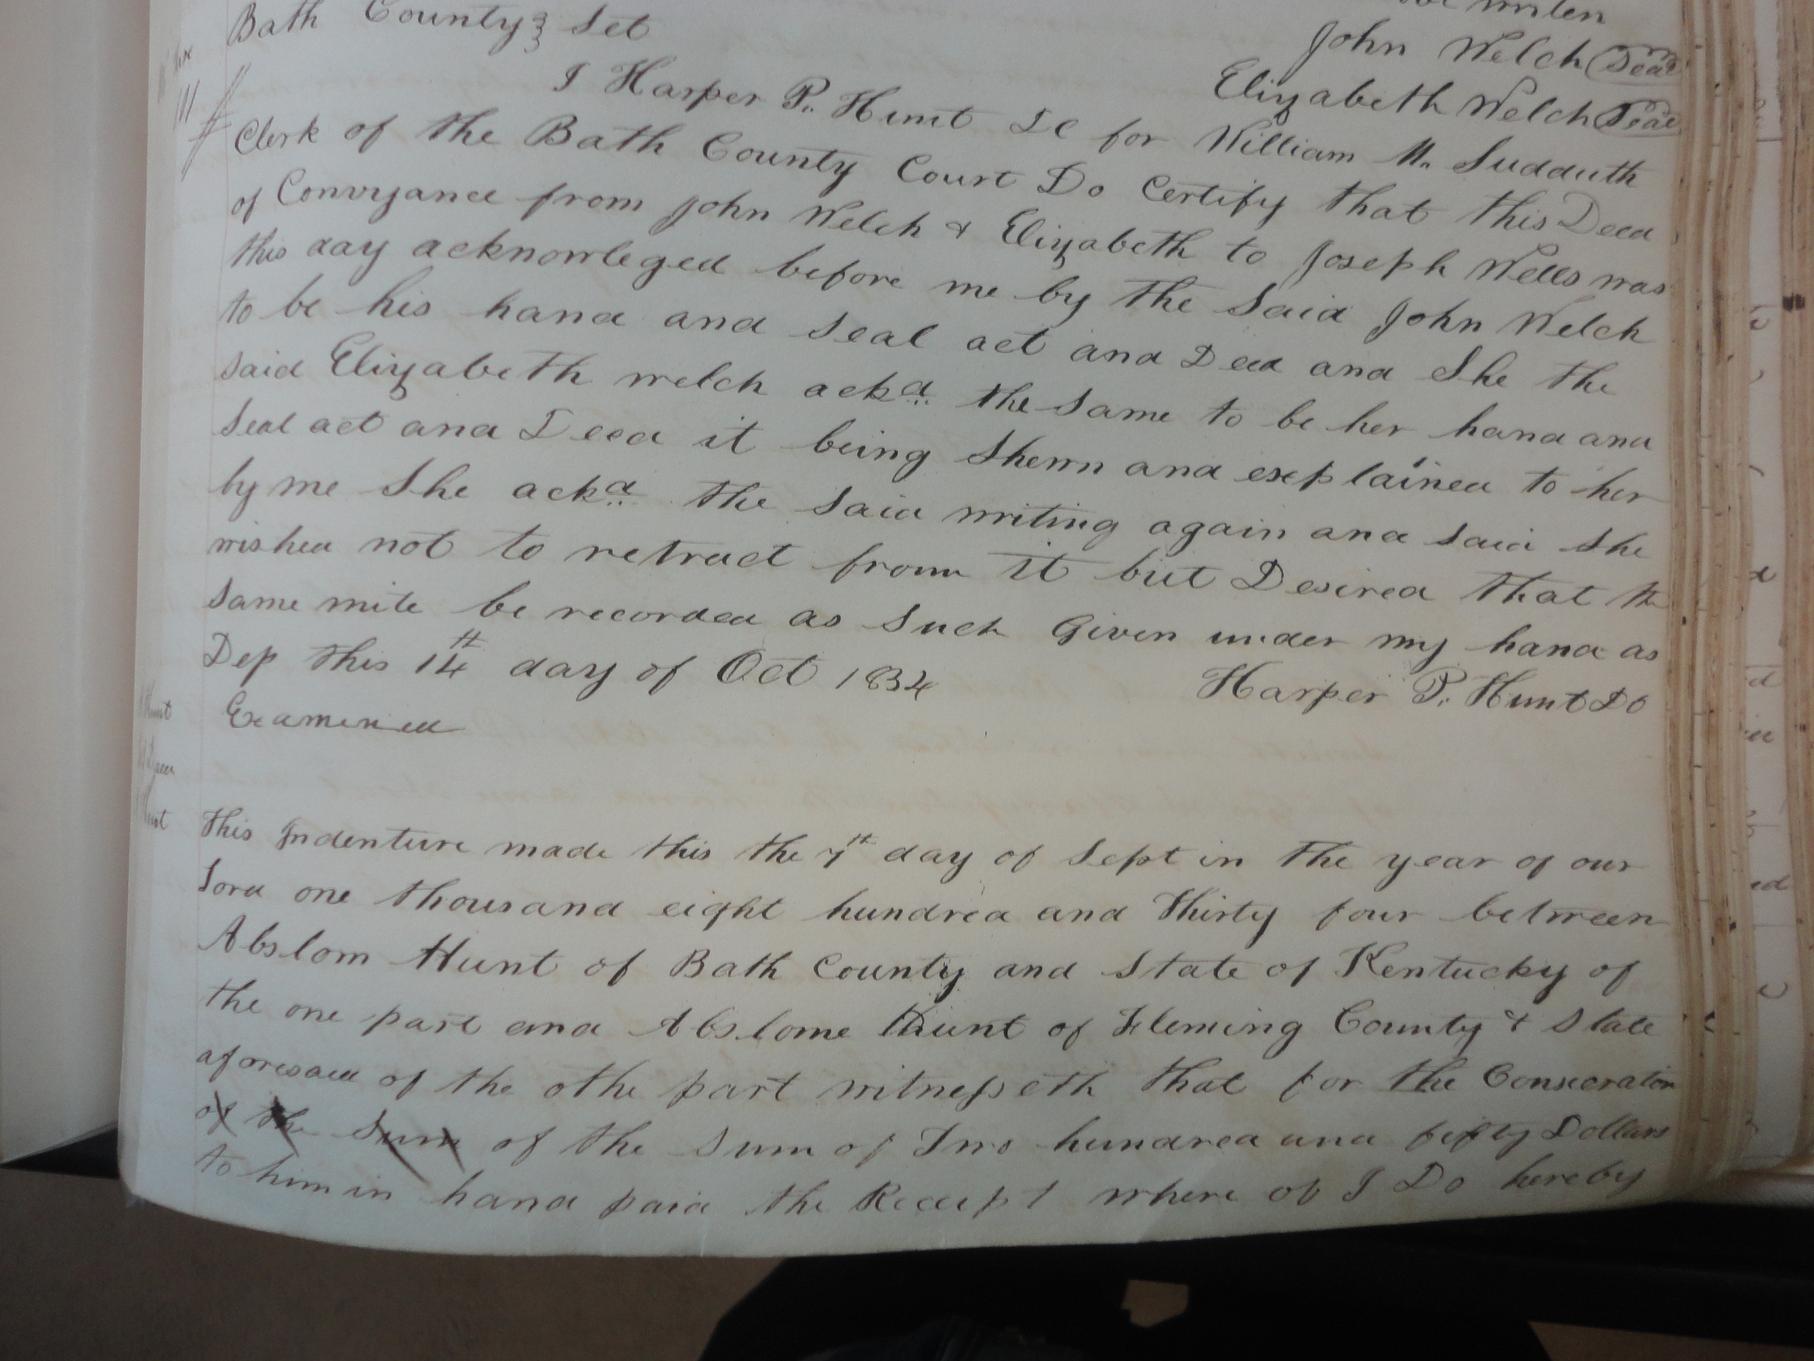 written
Bath County } Sct
John Welch (Seal)
Elizabeth Welch (Seal)
I Harper P. Hunt DC for William M. Sudduth
Clerk of the Bath County Court Do Certify that this Deed
of Convyance from John Welch & Elizabeth to Joseph Wells was
this day acknowleged before me by the Said John Welch
to be his hand and Seal act and Deed and She the
Said Elizabeth welch ackd the Same to be her hand and
Seal act and Deed it being Shewn and explained to her
by me She ackd the Said writing again and Said She
wished not to retract from it but Desired that the
Same mite be recorded as Such Given under my hand as
Dep this 14th day of Oct 1834
Harper P. Hunt DC
Examined
This Indenture made this the 7th day of Sept in the year of our
Lord one thousand eight hundred and Thirty four between
Abslom Hunt of Bath County and State of Kentucky of
the one part and Abslome Hunt of Fleming County & State
aforesaid of the othe part witnesseth that for the Conseration
of the Sum of the Sum of Two hundred and fifty Dollars
to him in hand paid the Receipt where of I Do hereby